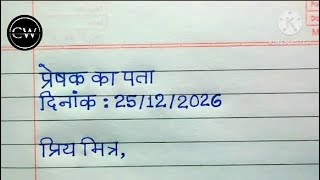 CW
प्रेषक का पता
दिनांक : 25/12/2026
प्रिय मित्र,